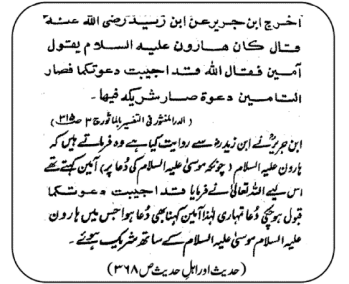 اخرج ابن جریر عن ابن زید رضی اللہ عنہ
قال کان ھارون علیہ السلام یقول
آمین فقال اللہ قد اجیبت دعوتکما فصار
التامین دعوة صار شریکہ فیھا۔
(الدر المنثور فی التفسیر بالماثور ج۳ ص۳۱۵)
ابن جریرؒ نے ابن زیدؓ سے روایت کیا ہے وہ فرماتے ہیں کہ
ہارون علیہ السلام (چونکہ موسیٰ علیہ السلام کی دُعا پر) آمین کہتے تھے
اس لیے اللہ تعالیٰ نے فرمایا قد اجیبت دعوتکما
قبول ہوچکی دُعا تمہاری لہٰذا آمین کہنا بھی دُعا ہوا جس میں ہارون
علیہ السلام موسیٰ علیہ السلام کے ساتھ شریک ہوئے۔
(حدیث اور اہل حدیث ص ۳۶۸)